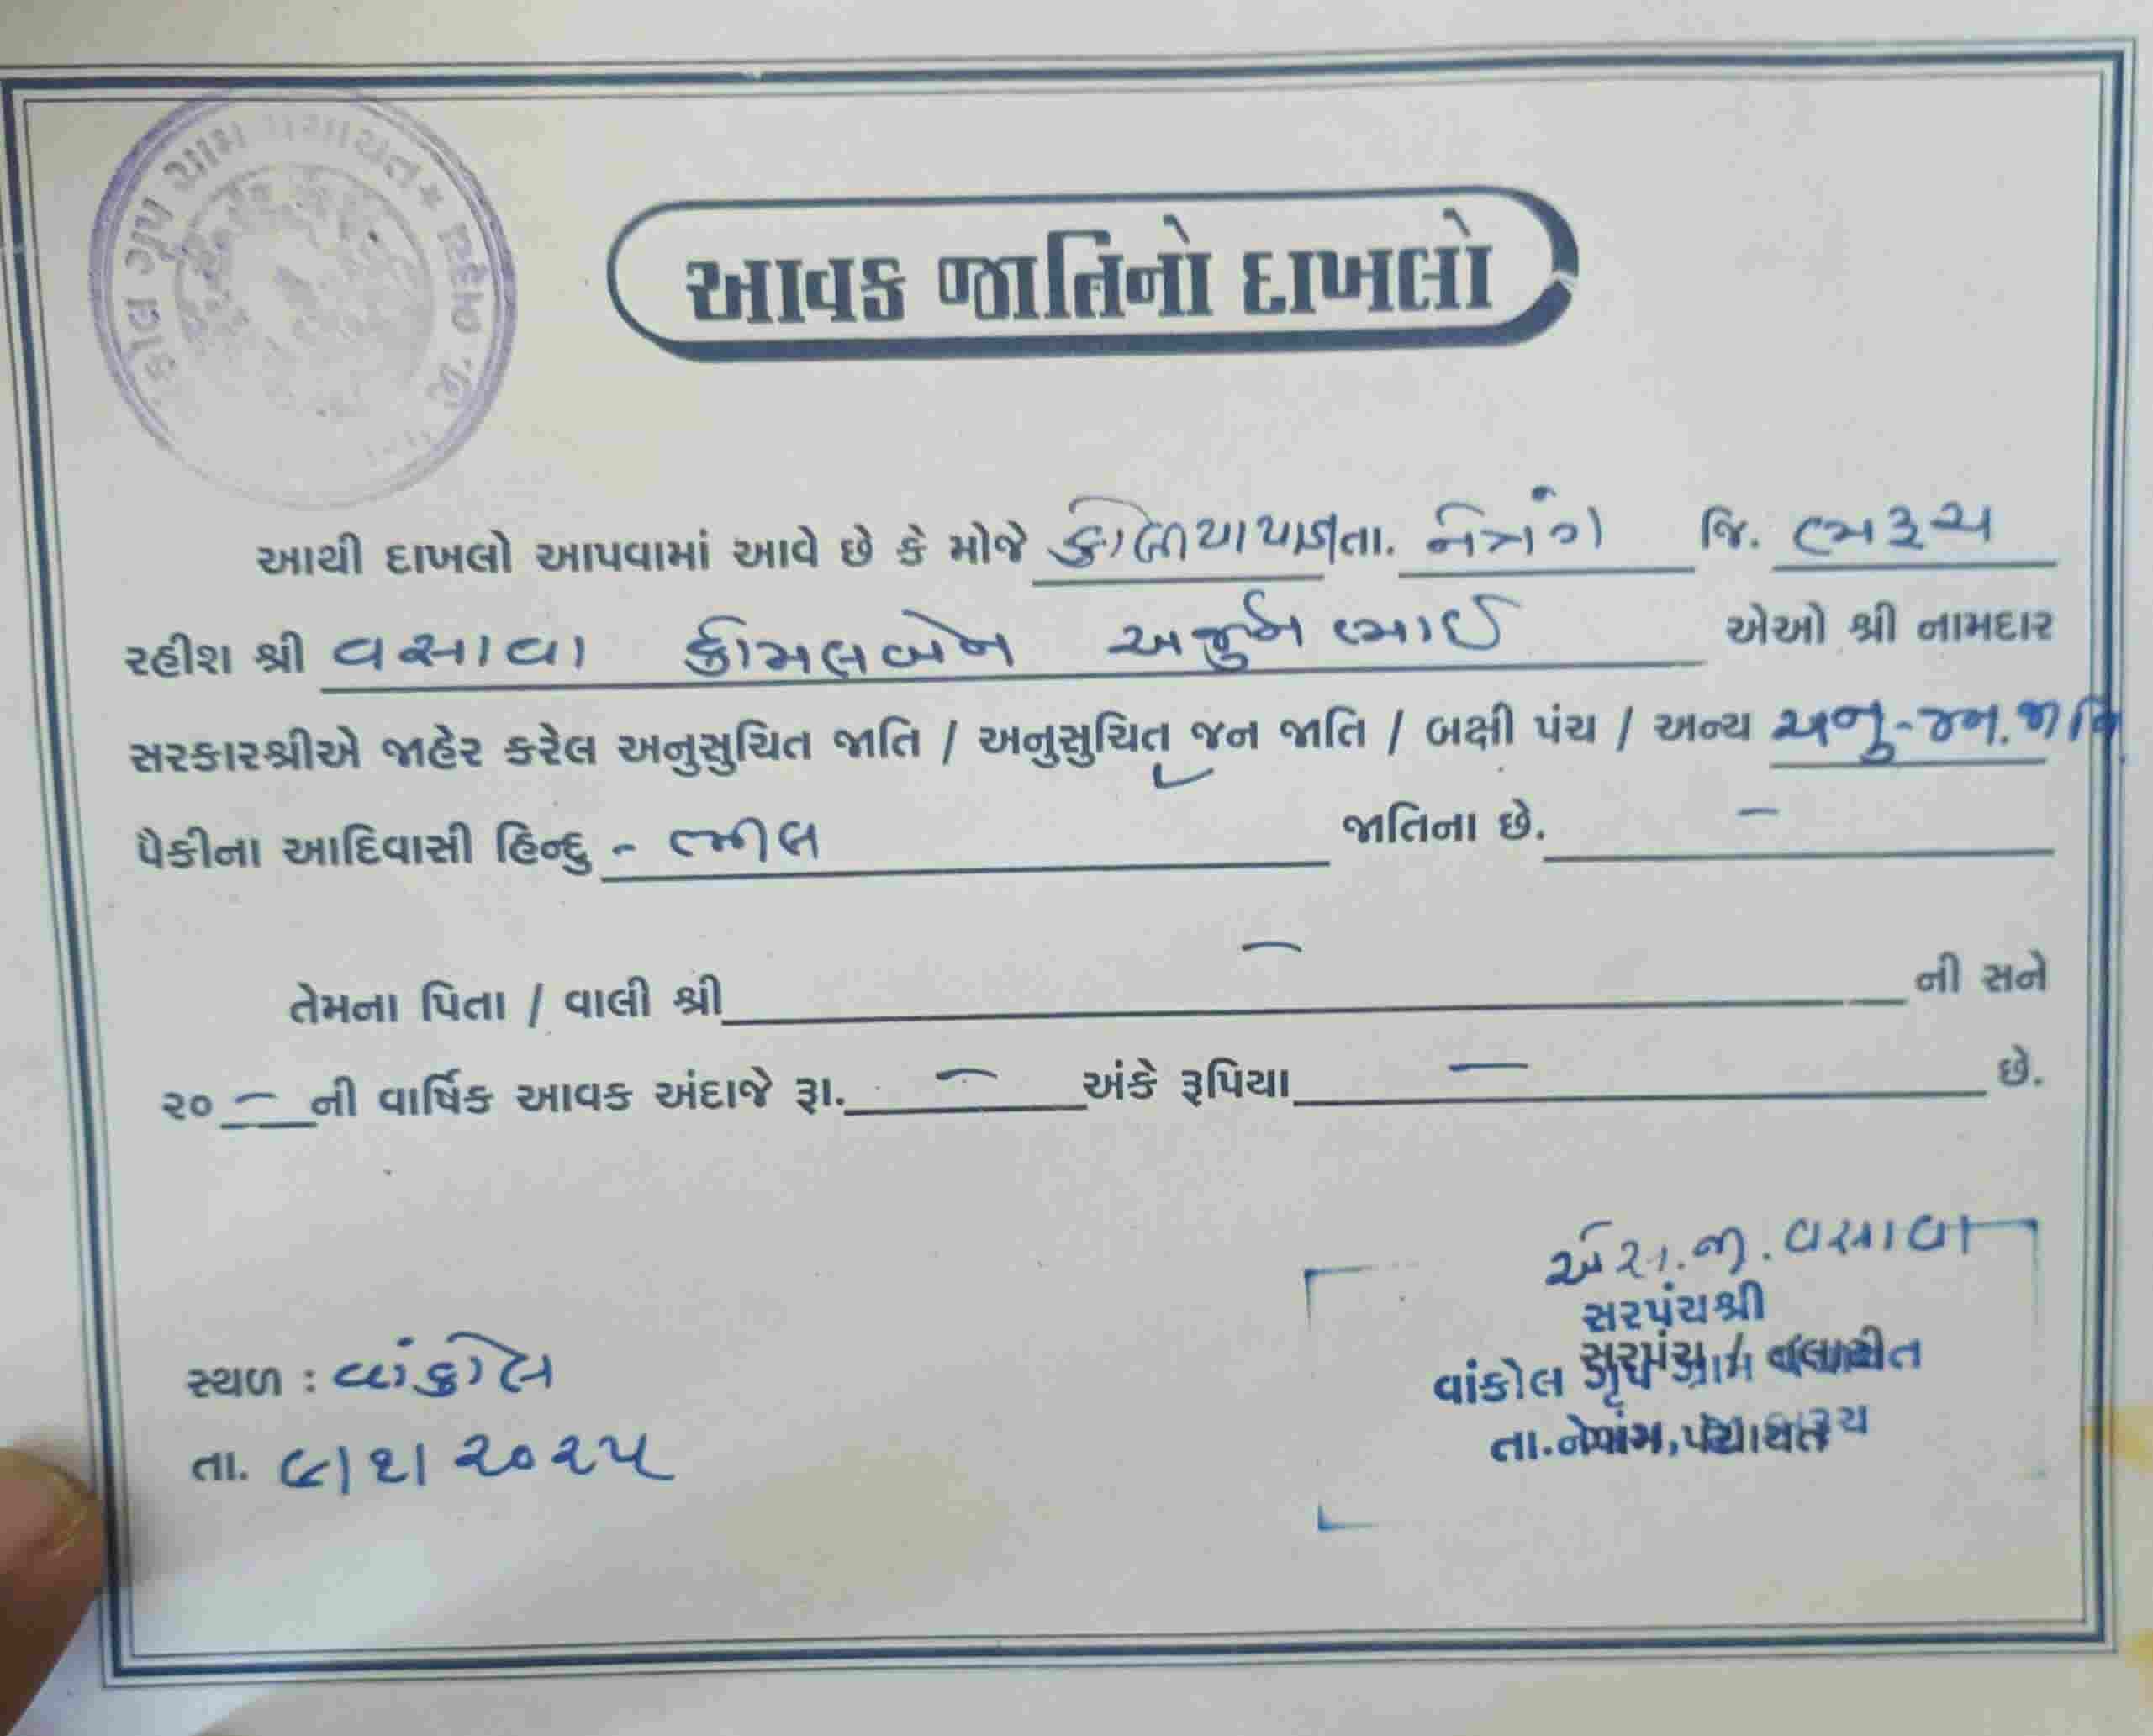 ગૃપ ગ્રામ પંચાયત *
આવક જાતિનો દાખલો
આથી દાખલો આપવામાં આવે છે કે મોજે કોલીયાપાડા તા. નેત્રંગ જિ. ભરૂચ
રહીશ શ્રી વસાવા કોમલબેન અર્જુનભાઈ એઓ શ્રી નામદાર
સરકારશ્રીએ જાહેર કરેલ અનુસુચિત જાતિ / અનુસુચિત જન જાતિ / બક્ષી પંચ / અન્ય અનુ-જન.જાતિ
પૈકીના આદિવાસી હિન્દુ - ભીલ જાતિના છે. –
તેમના પિતા / વાલી શ્રી – ની સને
૨૦ – ની વાર્ષિક આવક અંદાજે રૂા. – અંકે રૂપિયા – છે.
એસ.જી.વસાવા
સરપંચશ્રી
સરપંચ / તલાટી
વાંકોલ ગૃપ ગ્રામ પંચાયત
તા.નેત્રંગ, જી.ભરૂચ
સ્થળ : વાંકોલ
તા. ૯/૧/૨૦૨૫